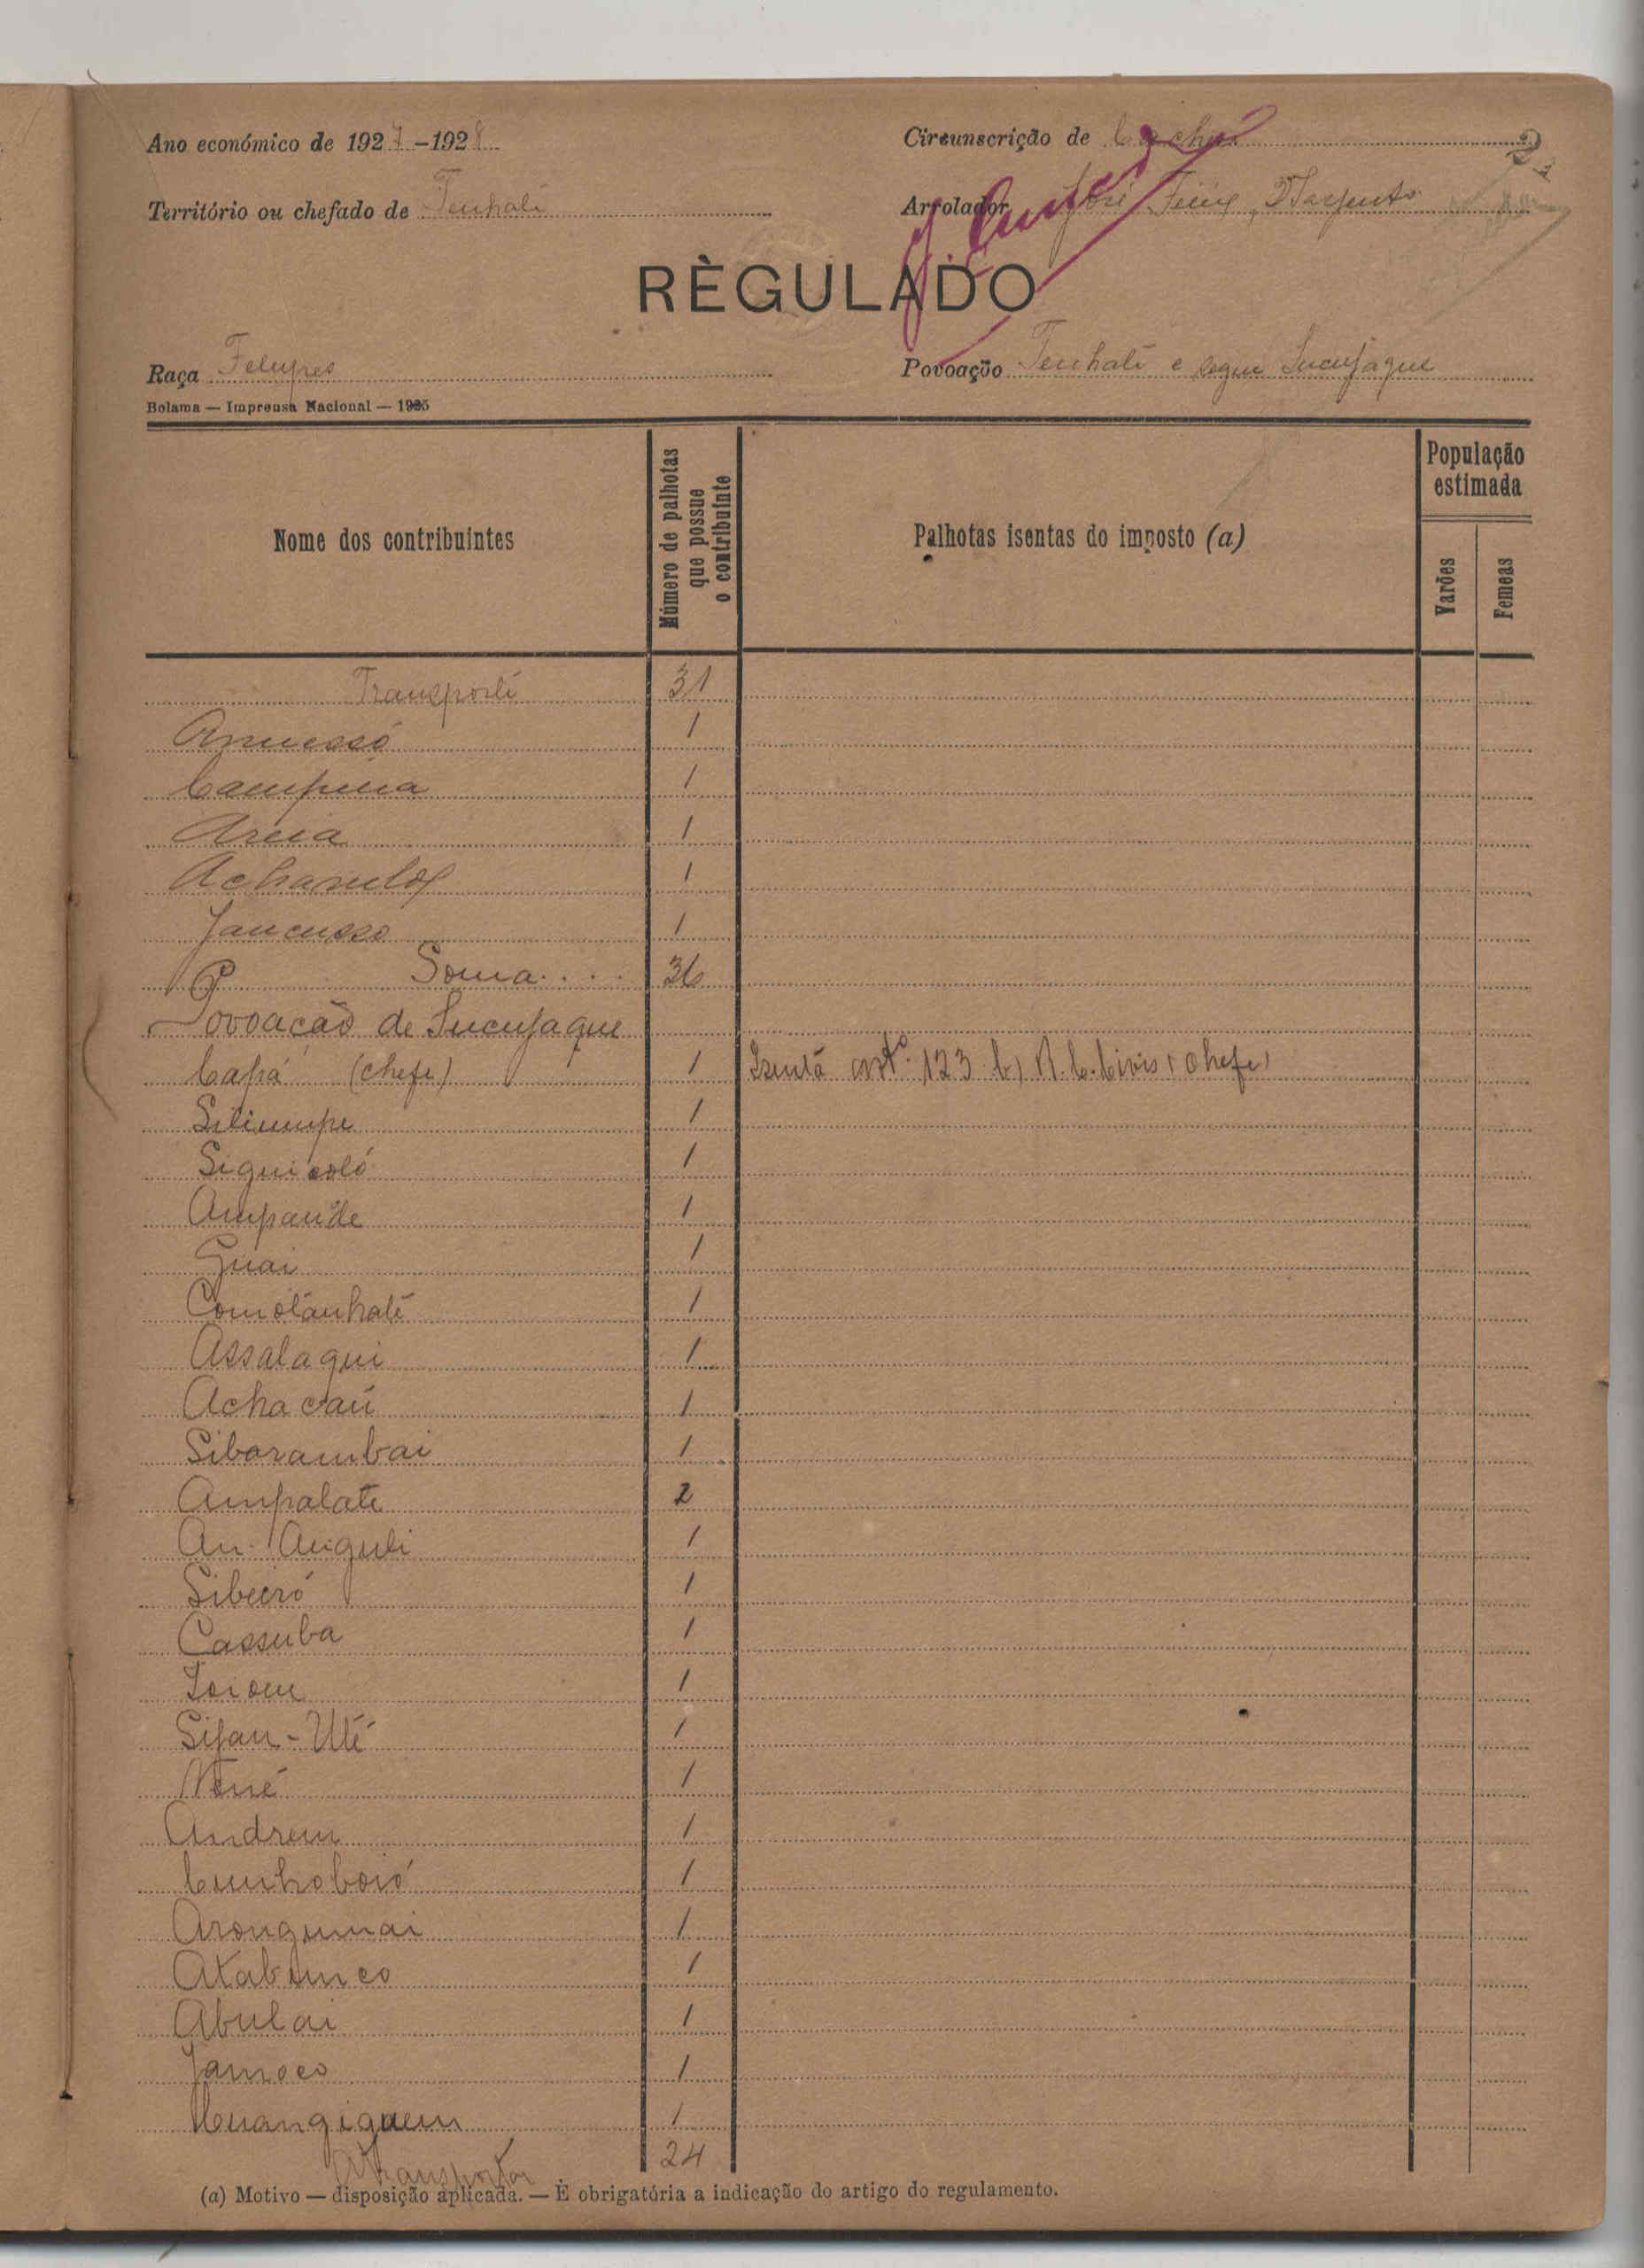 Ano económico de 1927-1928
Circunscrição de Cacheu
2
Território ou chefado de Tenhate
Arrolador José Feliz, 2º Sargento
RÈGULADO
Raça Felupes
Povoação Tenhate e segue Sucujaque
Bolama — Imprensa Nacional — 1925
Nome dos contribuintes
Número de palhotas que possue o contribuinte
Palhotas isentas do imposto (a)
População estimada
Varões
Femeas
Transporte 31
Amuessó 1
Campuia 1
Areia 1
1
Jancusso 1
Soma.... 36
Povoação de Sucujaque
Capá (chefe) 1 Isenta artº. 123 b) R. C. Civis (chefe)
Silimupe 1
Siguicoló 1
Ampande 1
Guai 1
Comotanhate 1
Assalaqui 1
Achacaú 1
Siborambai 1
Ampalate 2
An-Anguli 1
Sibeeró 1
Cassuba 1
Ioiom 1
Sijan-Uté 1
Nené 1
Andrem 1
Cunhoboió 1
Arongumai 1
Atabunco 1
Abulai 1
Jamoco 1
1
A Transportar 24
(a) Motivo — disposição aplicada. — È obrigatória a indicação do artigo do regulamento.